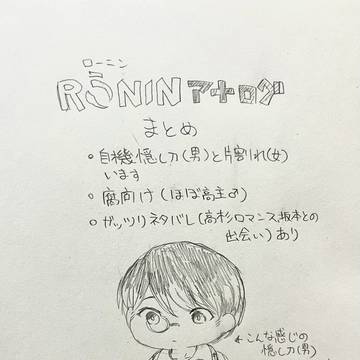 ローニン
RŌNIN アナログ
まとめ
○自機隠し刀(男)と片割れ(女)
います
○腐向け(ほぼ高主♂)
○ガッツリネタバレ(高杉ロマンス、坂本との
出会い)あり
←こんな感じの
隠し刀(男)